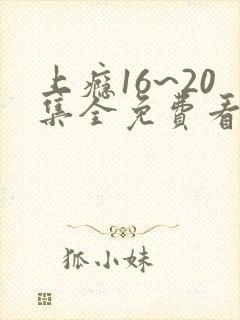 上瘾16~20
集全免费看
狐小妹